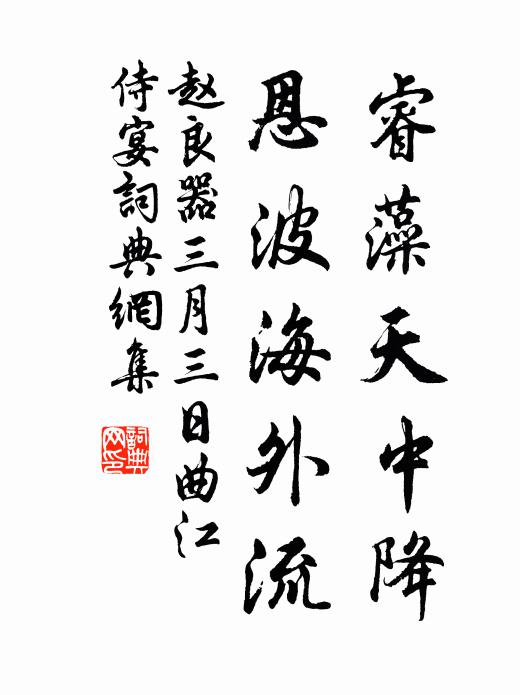 睿藻天中降
恩波海外流
赵良器三月三日曲江
侍宴詞典網集
詞典网印